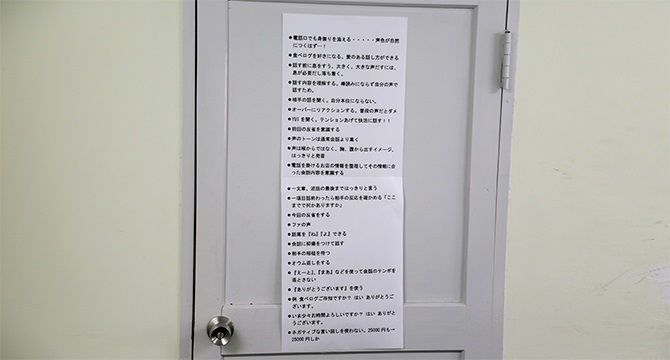 ●電話口でも身振りを加える・・・・・声色が自然
につくはずー！
●食べログを好きになる。愛のある話し方ができる
●話す前に息をすう。大きく。大きな声だすには、
息が必要だし落ち着く。
●話す内容を理解する。棒読みにならず自分の声で
話すため。
●相手の話を聞く。自分本位にならない。
●オーバーにリアクションする。普段の声だとダメ
●YUIを聞く。テンションあげて快活に話す！！
●前回の反省を意識する
●声のトーンは通常会話より高く
●声は喉からではなく、胸、腹から出すイメージ。
はっきりと発音
●電話を掛けるお店の情報を整理してその情報に合
った会話内容を意識する
●一文章、述語の最後まではっきりと言う
●一項目話終わったら相手の反応を確かめる「ここ
までで何かありますか」
●今回の反省をする
●ファの声
●語尾を『ね』『よ』できる
●会話に抑揚をつけて話す
●相手の相槌を待つ
●オウム返しをする
●『えーと』、『まあ』などを使って会話のテンポを
落とさない
●『ありがとうございます』を使う
●例 食べログご存知ですか？ はい ありがとうご
ざいます。
●いま少々お時間よろしいですか？ はい ありがと
うございます。
●ネガティブな言い回しを使わない。25000円も→
25000円しか